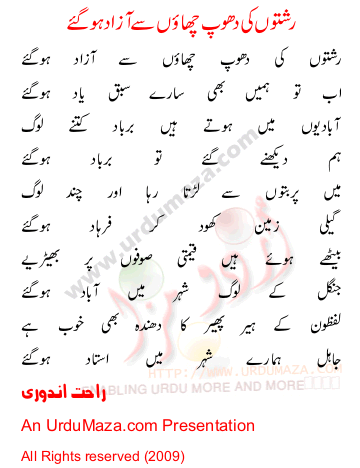 رشتوں کی دھوپ چھاؤں سے آزاد ہوگئے
رشتوں کی دھوپ چھاؤں سے آزاد ہوگئے
اب تو ہمیں بھی سارے سبق یاد ہوگئے
آبادیوں میں ہوتے ہیں برباد کتنے لوگ
ہم دیکھنے گئے تو برباد ہوگئے
میں پربتوں سے لڑتا رہا اور چند لوگ
گیلی زمین کھود کر فرہاد ہوگئے
بیٹھے ہوئے ہیں قیمتی صوفوں پر بھیڑیے
جنگل کے لوگ شہر میں آباد ہوگئے
لفظوں کے ہیر پھیر کا دھندہ بھی خوب ہے
جاہل ہمارے شہر میں استاد ہوگئے
www.urdumaza.com
اردو مزا
WWW.URDUMAZA.COM
ENABLING URDU MORE AND MORE
راحت اندوری
An UrduMaza.com Presentation
All Rights reserved (2009)